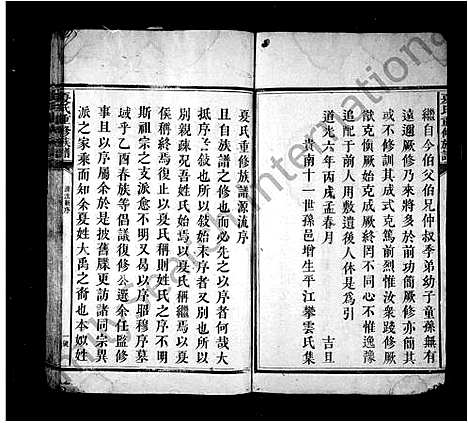 夏氏重修族譜
繼自今伯父伯兄仲叔季弟幼子童孫無有
遠邇厥修乃來將多於前功簡厥修亦簡其
或不修訓其成式克篤前烈惟汝衆踐修厥
猷克愼厥始成厥終罔不同心不惟逸豫
追配于前人用敷遺後人休是爲引
道光六年丙戌孟春月 吉旦
南十一世孫邑增生平江攀雲氏集
夏氏重修族譜源流序
且自族譜之修也而必先之以序者何哉大
抵序之敍也所以敍始未序者又別也所以
別親疎况吾姓氏始焉以夏氏稱繼焉以
侯稱終焉復止以夏氏稱則姓氏之序不明
斯祖宗之支派愈不明又曷以序昭穆序墓
域乎乙酉春族等倡議復修公選余任監修
事且以序屬余於是披舊牒更訪諸同宗異
派之家乘而知余夏姓大禹之裔也本姒姓
夏氏重修族譜
源流新序